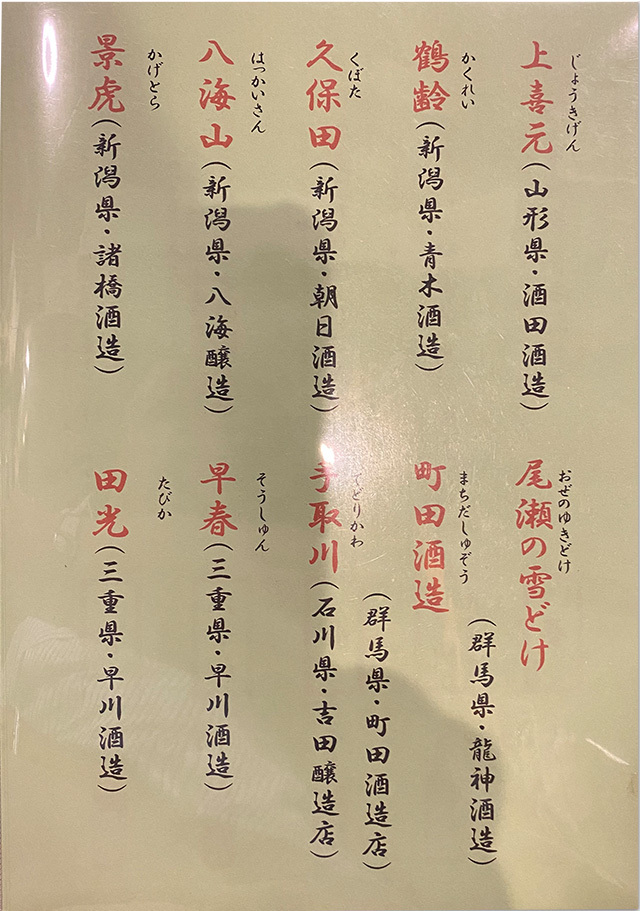 じょうきげん
上喜元(山形県・酒田酒造)
かくれい
鶴齢(新潟県・青木酒造)
くぼた
久保田(新潟県・朝日酒造)
はっかいさん
八海山(新潟県・八海醸造)
かげとら
景虎(新潟県・諸橋酒造)
おぜのゆきどけ
尾瀬の雪どけ
(群馬県・龍神酒造)
まちだしゅぞう
町田酒造
(群馬県・町田酒造店)
てどりかわ
手取川(石川県・吉田醸造店)
そうしゅん
早春(三重県・早川酒造)
たびか
田光(三重県・早川酒造)